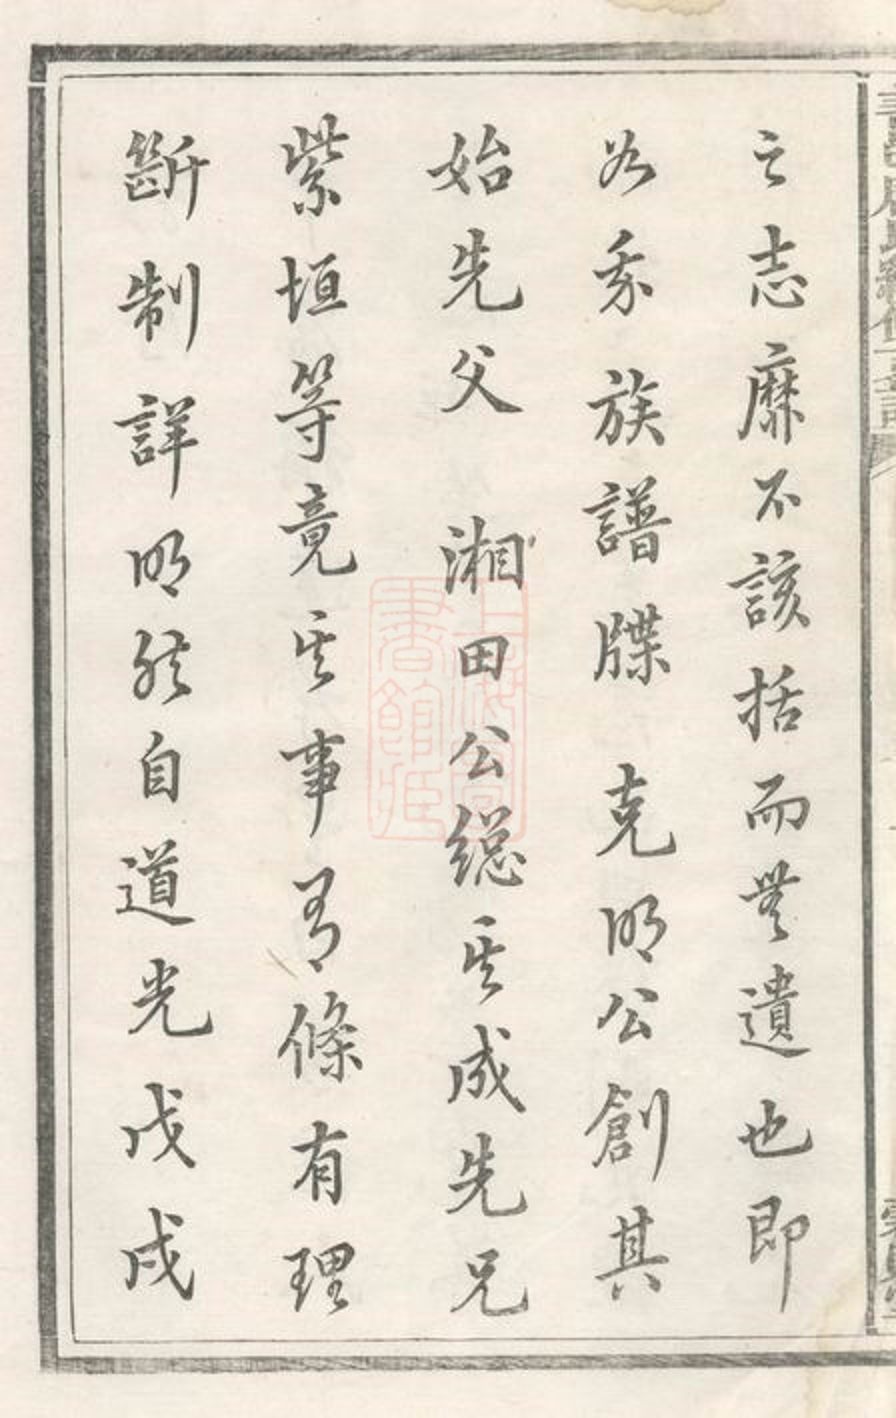 之志靡不該括而無遺也即
如我族譜牒克明公創其
始先父湘田公總其成先兄
紫垣等竟其事有條有理
斷制詳明然自道光戊戌
上海圖書館藏